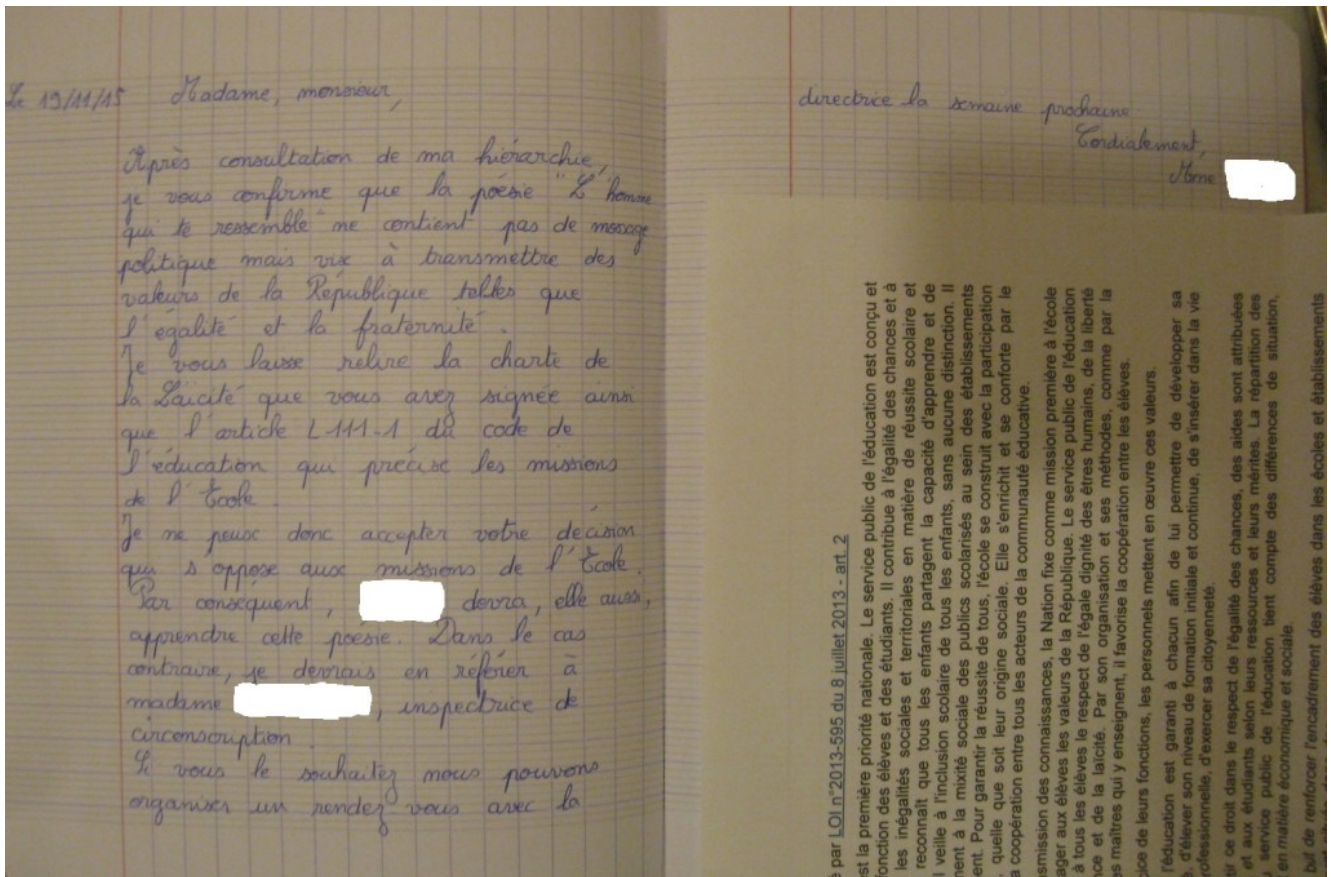 Le 19/11/15 Madame, monsieur,
Après consultation de ma hiérarchie,
je vous confirme que la poésie "L'homme
qui te ressemble" ne contient pas de message
politique mais vix à transmettre des
valeurs de la République telles que
l'égalité et la fraternité.
Je vous laisse relire la charte de
la Laïcité que vous avez signée ainsi
que l'article L 111-1 du code de
l'éducation qui précise les missions
de l'Ecole.
Je ne peux donc accepter votre décision
qui s'oppose aux missions de l'Ecole.
Par conséquent, devra, elle aussi,
apprendre cette poésie. Dans le cas
contraire, je devrais en référer à
madame , inspectrice de
circonscription.
Si vous le souhaitez nous pouvons
organiser un rendez vous avec la
directrice la semaine prochaine
Cordialement,
Mme
par LOI n°2013-595 du 8 juillet 2013 - art. 2
st la première priorité nationale. Le service public de l'éducation est conçu et
fonction des élèves et des étudiants. Il contribue à l'égalité des chances et à
les inégalités sociales et territoriales en matière de réussite scolaire et
reconnaît que tous les enfants partagent la capacité d'apprendre et de
l veille à l'inclusion scolaire de tous les enfants, sans aucune distinction. Il
ment à la mixité sociale des publics scolarisés au sein des établissements
ent. Pour garantir la réussite de tous, l'école se construit avec la participation
quelle que soit leur origine sociale. Elle s'enrichit et se conforte par le
a coopération entre tous les acteurs de la communauté éducative.
nsmission des connaissances, la Nation fixe comme mission première à l'école
ager aux élèves les valeurs de la République. Le service public de l'éducation
à tous les élèves le respect de l'égale dignité des êtres humains, de la liberté
nce et de la laïcité. Par son organisation et ses méthodes, comme par la
s maîtres qui y enseignent, il favorise la coopération entre les élèves.
ice de leurs fonctions, les personnels mettent en œuvre ces valeurs.
l'éducation est garanti à chacun afin de lui permettre de développer sa
, d'élever son niveau de formation initiale et continue, de s'insérer dans la vie
ofessionnelle, d'exercer sa citoyenneté.
tir ce droit dans le respect de l'égalité des chances, des aides sont attribuées
et aux étudiants selon leurs ressources et leurs mérites. La répartition des
u service public de l'éducation tient compte des différences de situation,
en matière économique et sociale.
but de renforcer l'encadrement des élèves dans les écoles et établissements